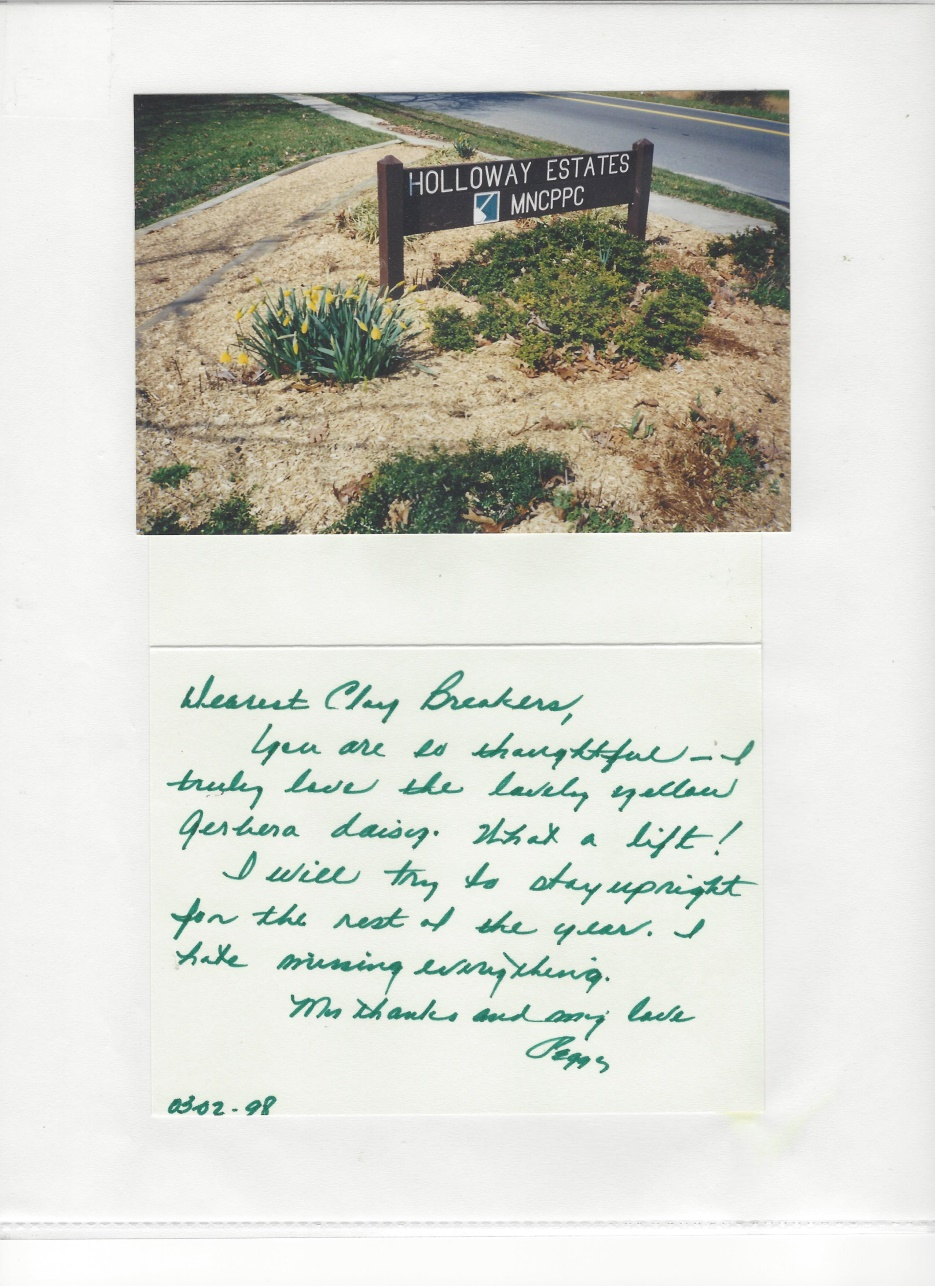 HOLLOWAY ESTATES
MNCPPC
Dearest Clay Breakers,
You are so thoughtful – I
truly love the lovely yellow
Gerbera daisy. What a lift!
I will try to stay upright
for the rest of the year. I
hate missing everything.
thanks and my love
Peggy
03-02-98